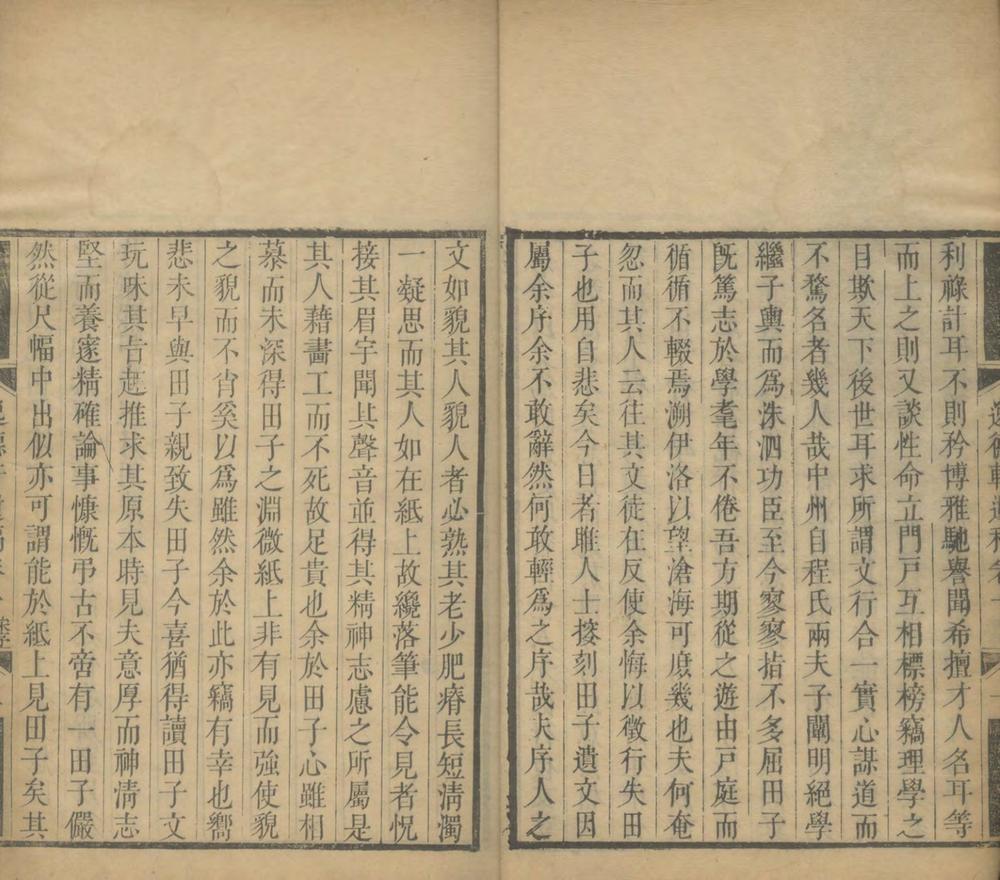 利祿計耳不則矜博雅馳譽聞希擅才人名耳等
而上之則又談性命立門戸互相標榜竊理學之
目欺天下後世耳求所謂文行合一實心謀道而
不騖名者幾人哉中州自程氏兩夫子闡明絕學
繼子輿而爲洙泗功臣至今寥寥指不多屈田子
旣篤志於學耄年不倦吾方期從之遊由戸庭而
循循不輟焉溯伊洛以望滄海可庶幾也夫何奄
忽而其人云徃其文徒在反使余悔以徵行失田
子也用自悲矣今日者雎人士㨿刻田子遺文因
屬余序余不敢辭然何敢輕爲之序哉夫序人之
文如貌其人貌人者必熟其老少肥瘠長短淸濁
一凝思而其人如在紙上故纔落筆能令見者怳
接其眉宇聞其聲音並得其精神志慮之所屬是
其人藉畵工而不死故足貴也余於田子心雖相
慕而未深得田子之淵微紙上非有見而強使貌
之貌而不肖奚以爲雖然余於此亦竊有幸也嚮
悲未早與田子親致失田子今喜猶得讀田子文
玩味其㫖趣推求其原本時見夫意厚而神淸志
堅而養邃精確論事慷慨弔古不啻有一田子儼
然從尺幅中出似亦可謂能於紙上見田子矣其